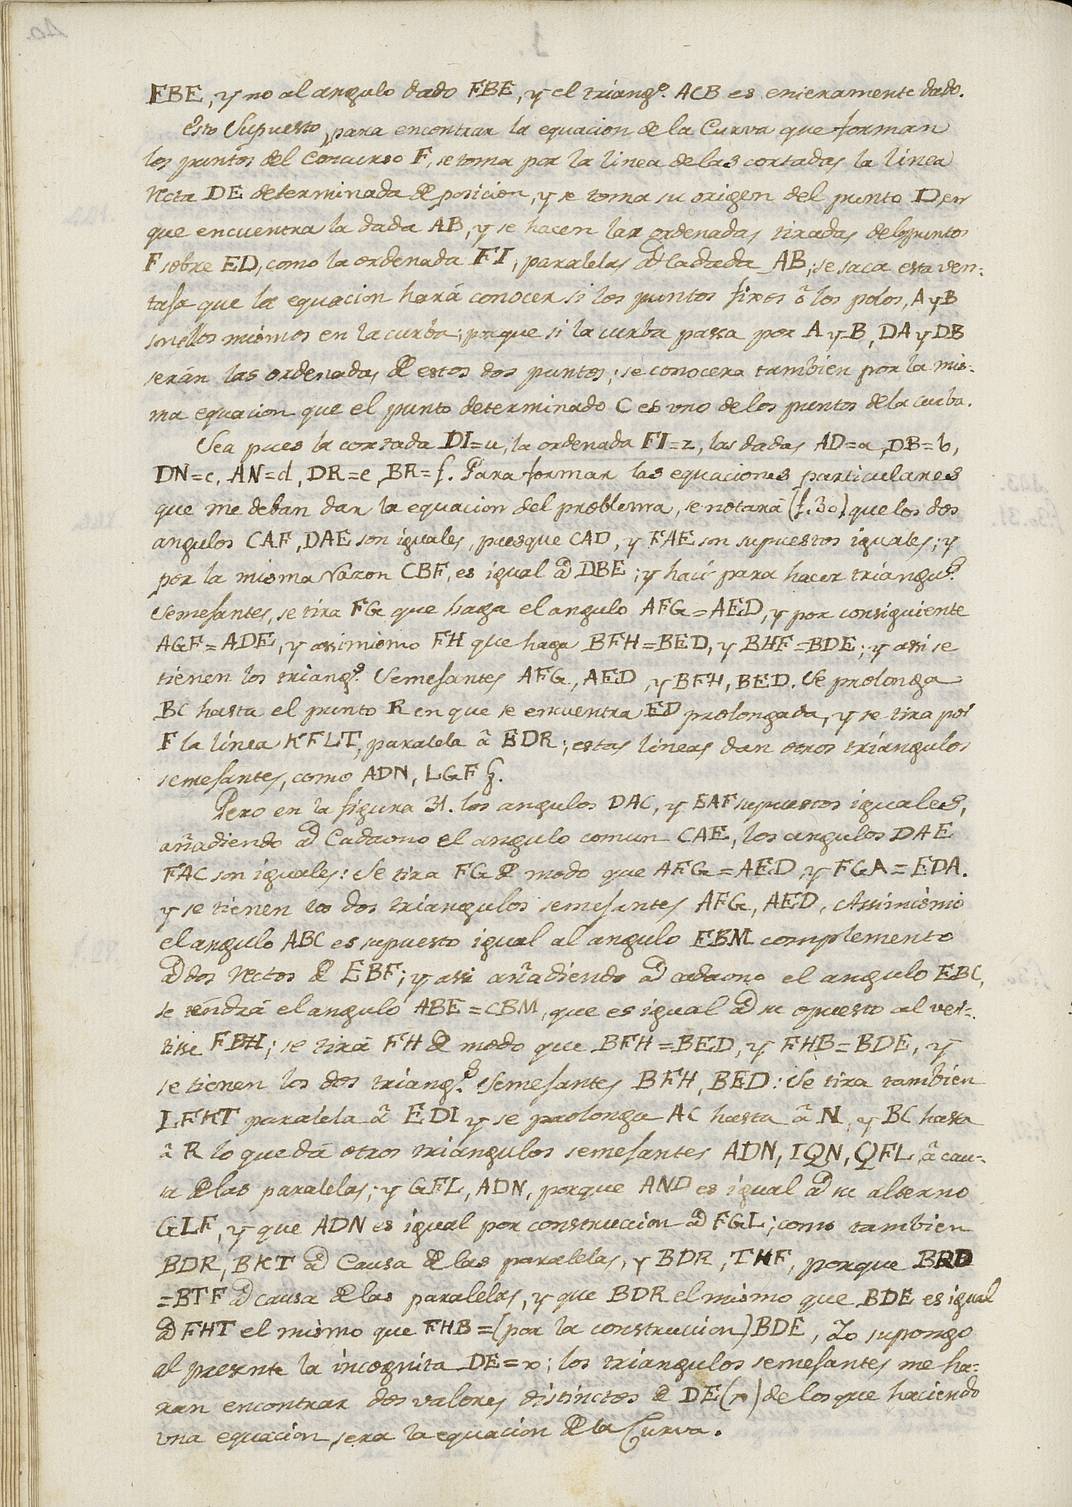 EBE, y no al angulo dado FBE, y el triangº. ACB es enteramente dado.
Esto Supuesto, para encontrar la equacion de la Curva que forman
los puntos del Concurso F, se toma por la linea de las cortadas la linea
recta DE determinada de posicion, y se toma su origen del punto D en
que encuentra la dada AB, y se hacen las ordenadas tiradas de los puntos
F sobre ED, como la ordenada FI, paralelas á la dada AB; se saca esta ven-
taja que la equacion hará conocer si los puntos fixos ô los polos, A y B
son ellos mismos en la curba; porque si la curba passa por A y B, DA y DB
serán las ordenadas de estos dos puntos; se conocera tambien por la mis-
ma equacion que el punto determinado C es uno de los puntos de la curba.
Sea pues la cortada DI=u, la ordenada FI=z, las dadas AD=a, DB=b,
DN=c, AN=d, DR=e, BR=f. Para formar las equaciones particulares
que me deban dar la equacion del problema, se notará (f. 30) que los dos
angulos CAF, DAE son iguales, puesque CAD, y FAE son supuestos iguales; y
por la misma razon CBF, es igual á DBE; y haci para hacer triangusº.
Semejantes, se tira FG que haga el angulo AFG=AED, y por consiguiente
AGF=ADE, y assimismo FH que haga BFH=BED, y BHF=BDE; y assi se
tienen los triangº. Semejantes AFG, AED, y BFH, BED. Se prolonga
BC hasta el punto R en que se encuentra ED prolongada, y se tira por
F la línea KFLT, paralela â EDR; estas líneas dan otros triangulos
semejantes, como ADN, LGF &.
Pero en la figura 31. los angulos DAC, y EAF supuestos iguales,
añadiendo á Cadauno el angulo comun CAE, los angulos DAE
FAC son iguales: Se tira FG de modo que AFG=AED y FGA=EDA.
y se tienen los dos triangulos semejantes AFG, AED, Assimismo
el angulo ABC es supuesto igual al angulo EBM complemento
á dos rectos de EBF; y assi añadiendo á cadauno el angulo EBC,
se tendrá el angulo ABE=CBM, que es igual á su opuesto al ver-
tise FBH; se tirá FH de modo que BFH=BED, y FHB=BDE, y
se tienen los dos triangº. Semejantes BFH, BED: Se tira tambien
LFHT paralela â EDI y se prolonga AC hasta â N, y BC hasta
â R lo que dá otros triangulos semejantes ADN, IQN, QFL, â cau-
sa de las paralelas; y GFL, ADN, porque AND es igual á su alterno
GLF, y que ADN es igual por construccion á FGL; como tambien
BDR, BKT á Causa de las paralelas, y BDR, THF, porque BRD
=BTF á causa de las paralelas, y que BDR el mismo que BDE es igual
á FHT el mismo que FHB=(por la construccion) BDE, Yo supongo
al presente la incognita DE=x; los triangulos semejantes me ha-
ran encontrar dos valores distinctos de DE(x) de los que haciendo
una equacion, sera la equacion de la Curva.